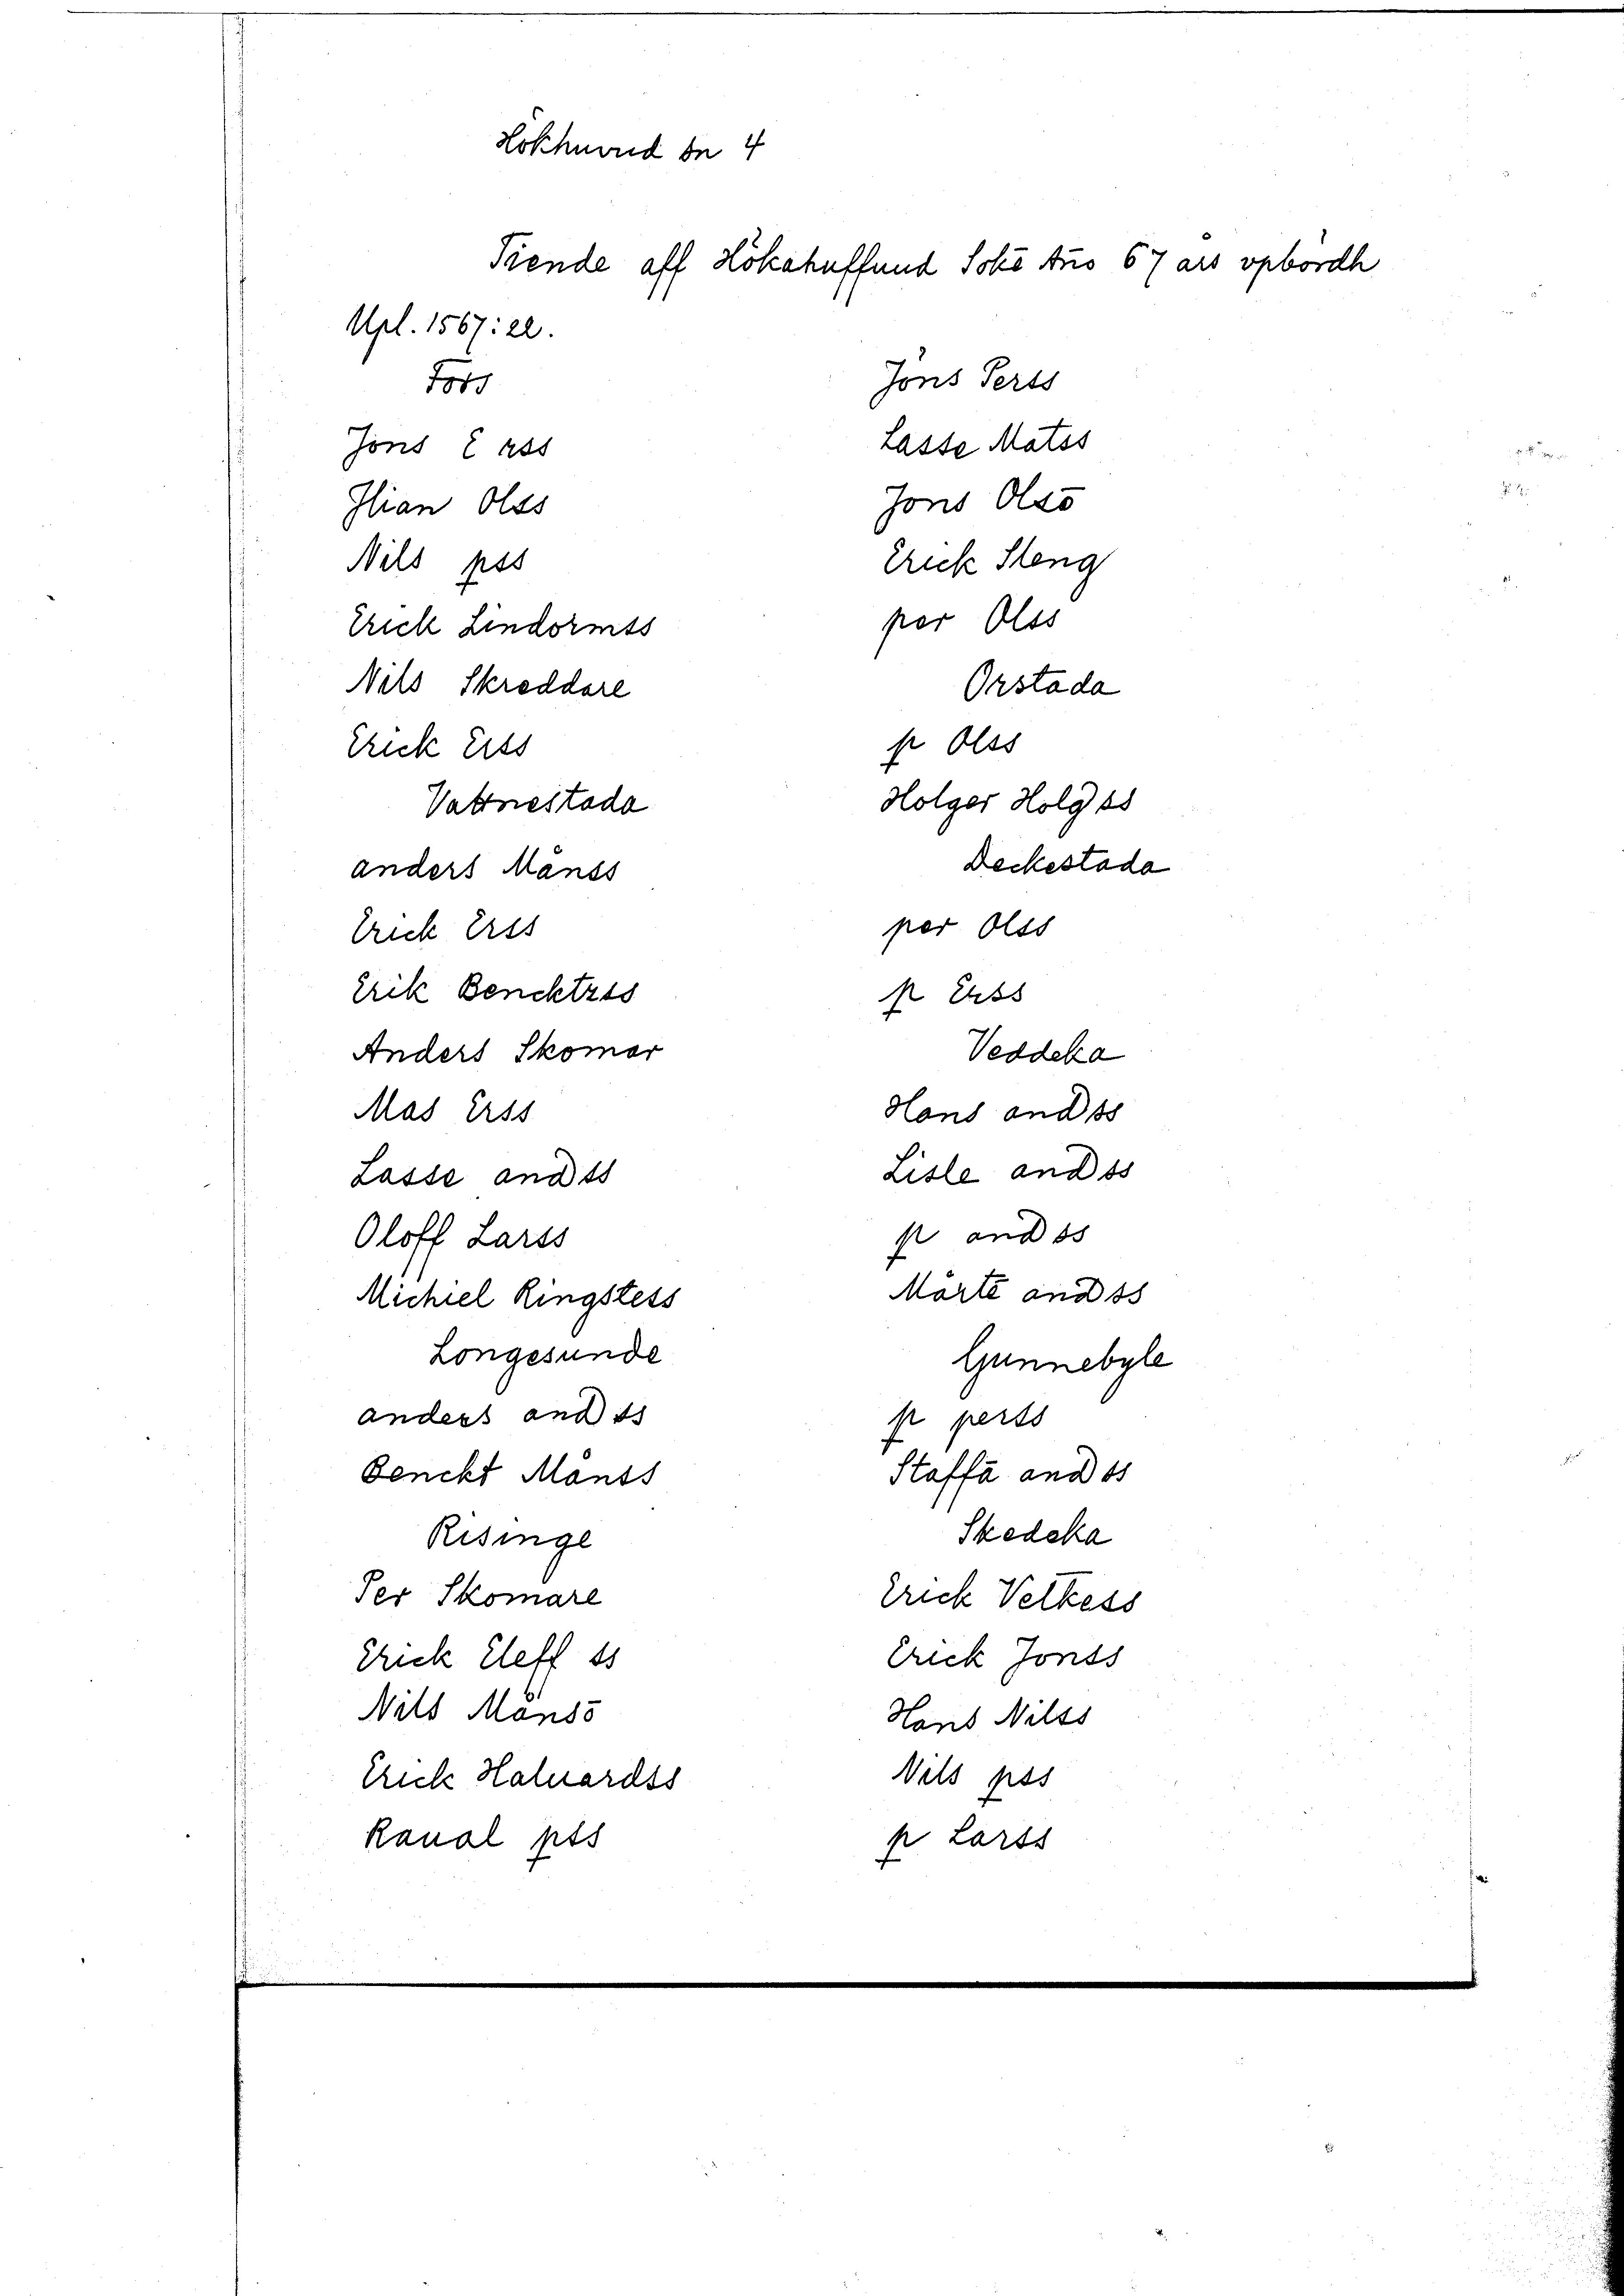 Hökhuvud sn 4
Tiende aff Hökahuffuud Sokē Año 67 års vpbördh
Upl. 1567:22.
Fors
Jons E rss
Jlian Olss
Nils pss
Erich Lindormss
Nils Skreddare
Erick Erss
Vattnestada
anders Månss
Erich Erss
Erik Bencktzss
Anders Skomar
Mas Erss
Lasse andss
Oloff Larss
Michiel Ringstess
Longesunde
anders andss
Benckt Månss
Risinge
Per Skomare
Erick Eleff ss
Nils Månsō
Erick Haluardss
Raual pss
Jöns Perss
Lasse Matss
Jons Olsō
Erick Sleng
per Olss
Orstada
p Olss
Holger Holgss
Deckestada
per Olss
p Erss
Veddeka
Hans andss
Lisle andss
p andss
Mårtē andss
Gunnebyle
p perss
Staffā andss
Skedeka
Erick Velkess
Erick Jonss
Hans Nilss
Nils pss
p Larss